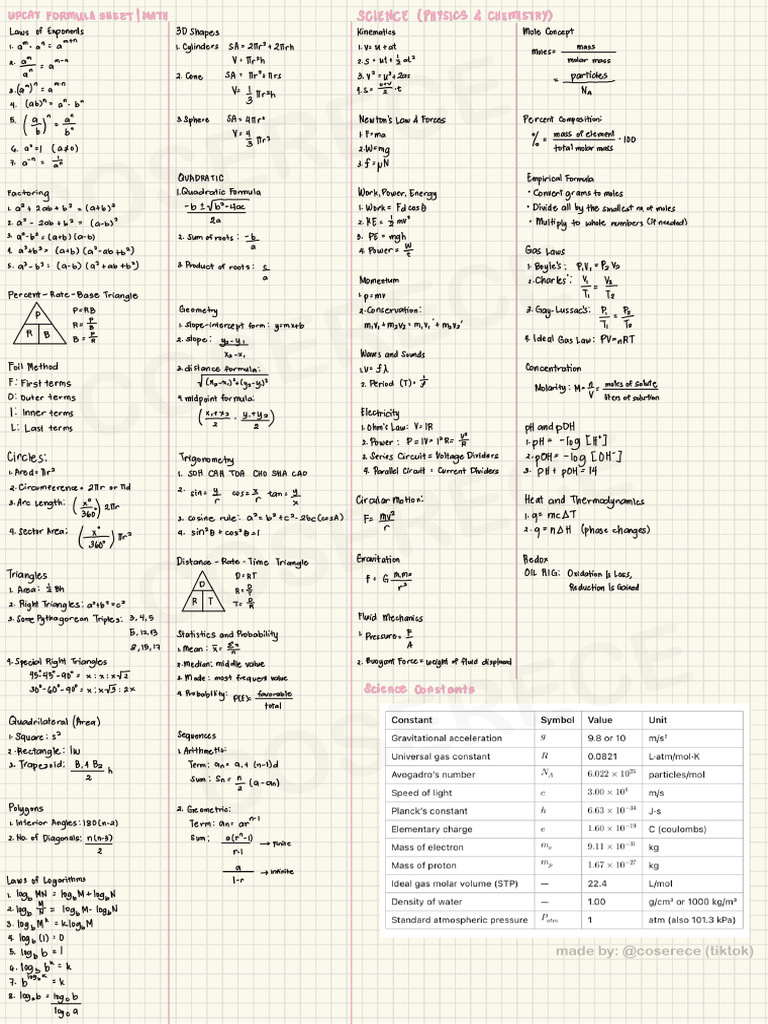 UPCAT FORMULA SHEET | MATH
Laws of Exponents
1. aᵐ · aⁿ = aᵐ⁺ⁿ
2. aᵐ/aⁿ = aᵐ⁻ⁿ
3. (aᵐ)ⁿ = aᵐ⁻ⁿ
4. (ab)ⁿ = aⁿ · bⁿ
5. (a/b)ⁿ = aⁿ/bⁿ
6. a⁰ = 1 (a≠0)
7. a⁻ⁿ = 1/aⁿ
Factoring
1. a² + 2ab + b² = (a+b)²
2. a² - 2ab + b² = (a-b)²
3. a² - b² = (a+b)(a-b)
4. a³+b³ = (a+b)(a²-ab+b²)
5. a³-b³ = (a-b)(a²+ab+b²)
Percent-Rate-Base Triangle
P
R B
P=RB
R= P/B
B= P/R
Foil Method
F: First terms
O: Outer terms
I: Inner terms
L: Last terms
Circles:
1. Area = πr²
2. Circumference = 2πr or πd
3. Arc Length: (x°/360°) 2πr
4. Sector Area: (x°/360°) πr²
Triangles
1. Area: ½ bh
2. Right Triangles: a²+b²=c²
3. Some Pythagorean Triples: 3, 4, 5
5, 12, 13
8, 15, 17
4. Special Right Triangles
45°-45°-90° = x : x : x√2
30°-60°-90° = x : x√3 : 2x
Quadrilateral (Area)
1. Square: s²
2. Rectangle: lw
3. Trapezoid: B₁ + B₂/2 h
Polygons
1. Interior Angles: 180(n-2)
2. No. of Diagonals: n(n-3)/2
Laws of Logarithms
1. log_b MN = log_b M + log_b N
2. log_b M/N = log_b M - log_b N
3. log_b Mᵏ = k log_b M
4. log_b (1) = 0
5. log_b b = 1
6. log_b bᵏ = k
7. b^(log_b k) = k
8. log_a b = log_c b / log_c a
3D Shapes
1. Cylinders SA = 2πr² + 2πrh
V = πr²h
2. Cone SA = πr² + πrs
V = 1/3 πr²h
3. Sphere SA = 4πr²
V = 4/3 πr³
QUADRATIC
1. Quadratic Formula
-b ± √(b²-4ac) / 2a
2. Sum of roots: -b/a
3. Product of roots: c/a
Geometry
1. slope-intercept form: y=mx+b
2. slope: y₂-y₁/x₂-x₁
3. distance formula:
√((x₂-x₁)²+(y₂-y₁)²)
4. midpoint formula:
(x₁+x₂/2 , y₁+y₂/2)
Trigonometry
1. SOH CAH TOA CHO SHA CAO
2. sin = y/r cos = x/r tan = y/x
3. cosine rule: a² = b² + c² - 2bc(cosA)
4. sin²θ + cos²θ = 1
Distance-Rate-Time Triangle
D
R T
D=RT
R= D/T
T= D/R
Statistics and Probability
1. Mean: x̄ = Σx/n
2. Median: middle value
3. Mode: most frequent value
4. Probability: P(E): favorable/total
Sequences
1. Arithmetic:
Term: aₙ = a₁ + (n-1)d
Sum: Sₙ = n/2 (a-an)
2. Geometric:
Term: aₙ = arⁿ⁻¹
Sum: a(rⁿ-1)/r-1 → finite
a/1-r → infinite
SCIENCE (PHYSICS & CHEMISTRY)
Kinematics
1. V = u + at
2. S = ut + ½at²
3. V² = u² + 2as
4. S = u+v/2 · t
Newton's Law & Forces
1. F=ma
2. W=mg
3. f = μN
Work, Power, Energy
1. Work = Fd cos θ
2. KE = ½ mv²
3. PE = mgh
4. Power = W/t
Momentum
1. p = mv
2. Conservation:
m₁v₁ + m₂v₂ = m₁v₁' + m₂v₂'
Waves and Sounds
1. V = fλ
2. Period (T) = 1/f
Electricity
1. Ohm's Law: V=IR
2. Power: P = IV = I²R = V²/R
3. Series Circuit = Voltage Dividers
4. Parallel Circuit = Current Dividers
Circular Motion:
F = mv²/r
Gravitation
F = G m₁m₂/r²
Fluid Mechanics
1. Pressure = F/A
2. Buoyant Force = weight of fluid displaced
Mole Concept
moles = mass/molar mass
= particles/N_A
Percent Composition:
% = mass of element/total molar mass · 100
Empirical Formula
• Convert grams to moles
• Divide all by the smallest n of moles
• Multiply to whole numbers (if needed)
Gas Laws
1. Boyle's: P₁V₁ = P₂V₂
2. Charles': V₁/T₁ = V₂/T₂
3. Gay-Lussac's: P₁/T₁ = P₂/T₂
4. Ideal Gas Law: PV=nRT
Concentration
Molarity: M = n/V = moles of solute/liters of solution
pH and pOH
1. pH = -log [H⁺]
2. pOH = -log [OH⁻]
3. pH + pOH = 14
Heat and Thermodynamics
1. q = mcΔT
2. q = nΔH (phase changes)
Redox
OIL RIG: Oxidation Is Loss,
Reduction Is Gained
Science Constants
Constant Symbol Value Unit
Gravitational acceleration g 9.8 or 10 m/s²
Universal gas constant R 0.0821 L·atm/mol·K
Avogadro's number N_A 6.022 × 10²³ particles/mol
Speed of light c 3.00 × 10⁸ m/s
Planck's constant h 6.63 × 10⁻³⁴ J·s
Elementary charge e 1.60 × 10⁻¹⁹ C (coulombs)
Mass of electron mₑ 9.11 × 10⁻³¹ kg
Mass of proton mₚ 1.67 × 10⁻²⁷ kg
Ideal gas molar volume (STP) — 22.4 L/mol
Density of water — 1.00 g/cm³ or 1000 kg/m³
Standard atmospheric pressure P_atm 1 atm (also 101.3 kPa)
made by: @coserece (tiktok)
COSERECE
COSERECE
COSERECE